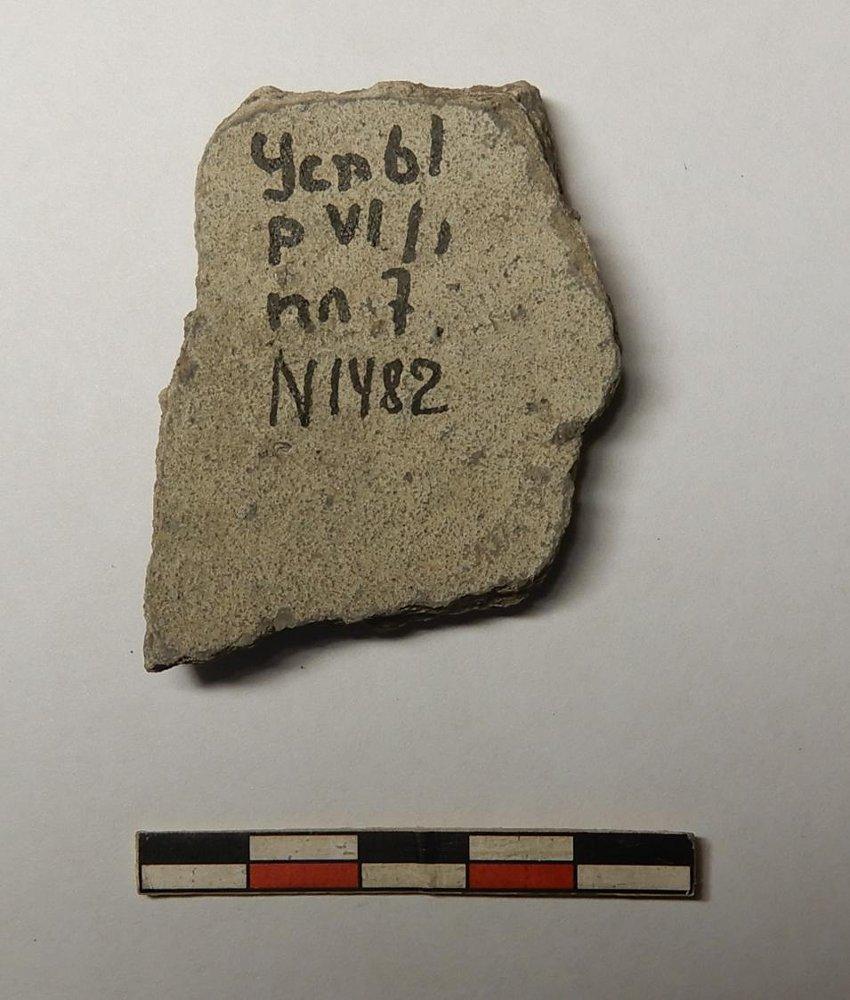 Успы
р VI/1
пл 7.
N1482